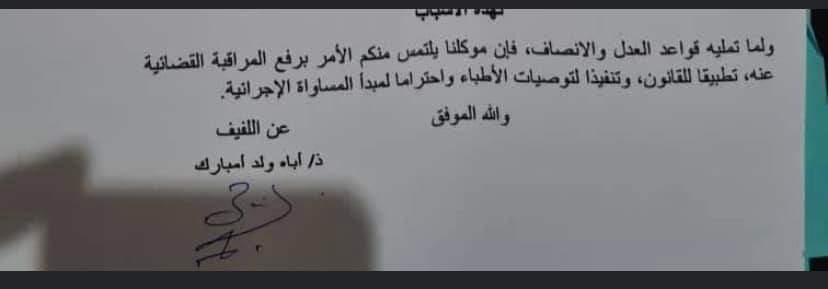 لهذه الأسباب
ولما تمليه قواعد العدل والانصاف، فإن موكلنا يلتمس منكم الأمر برفع المراقبة القضائية
عنه، تطبيقا للقانون، وتنفيذا لتوصيات الأطباء واحتراما لمبدأ المساواة الإجرائية.
والله الموفق
عن اللفيف
ذ/ أباه ولد أمبارك